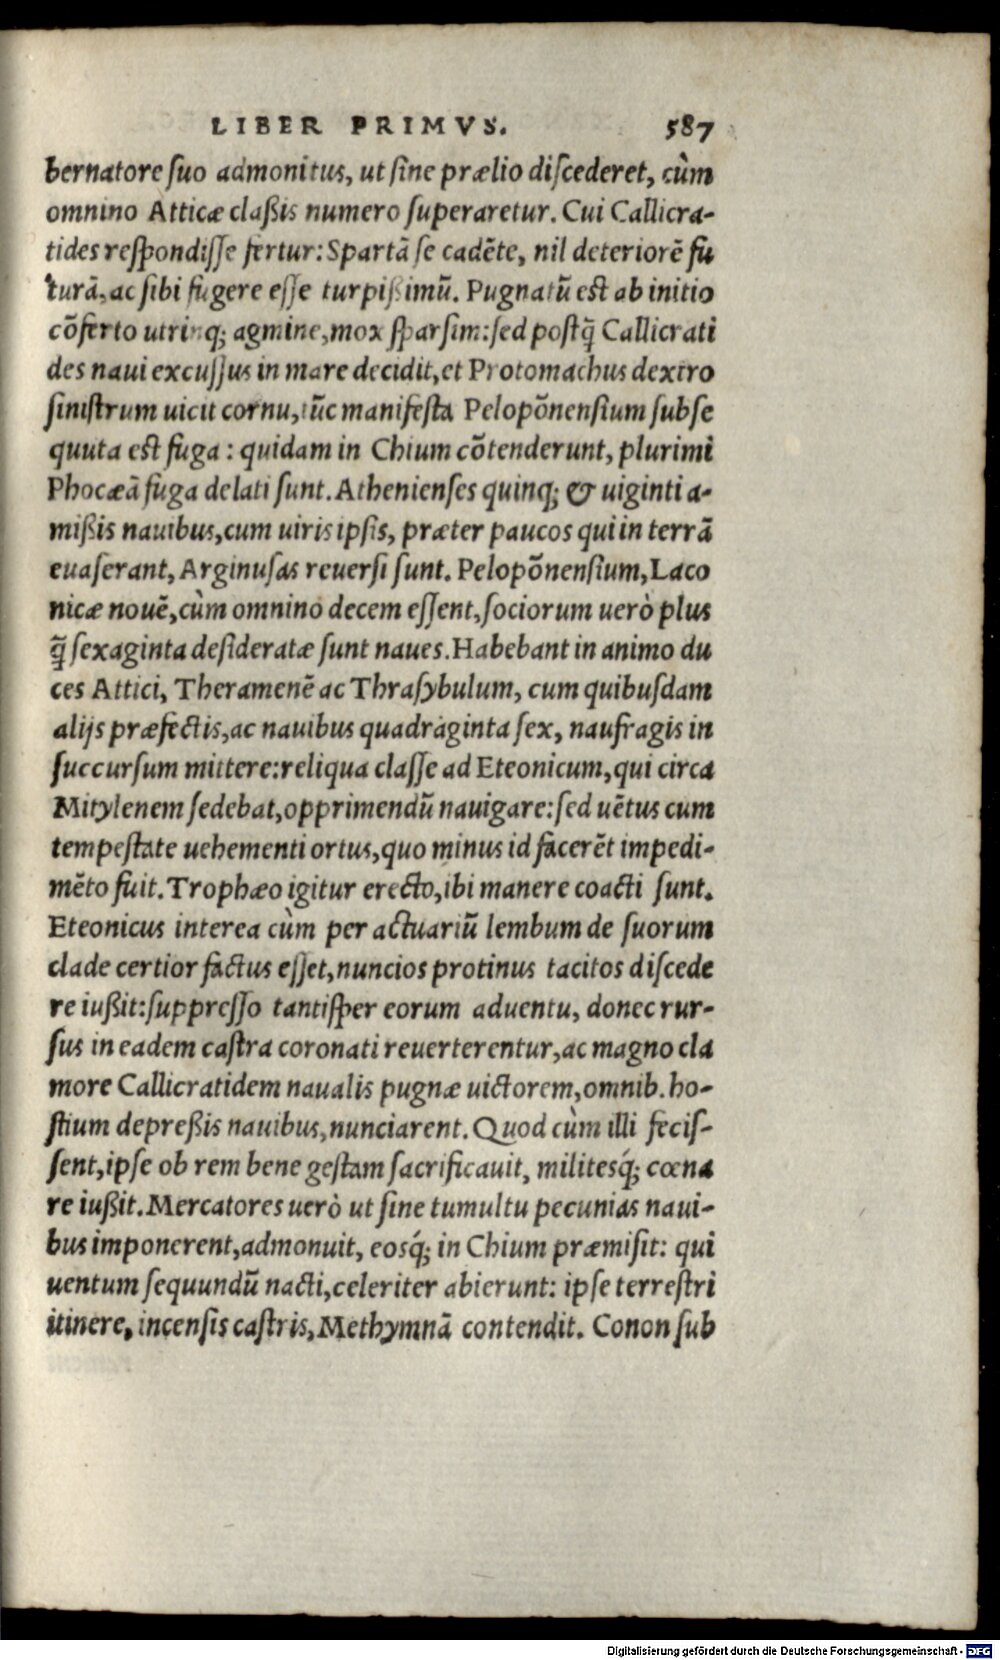 LIBER PRIMVS. 587
bernatore suo admonitus, ut sine prælio discederet, cùm
omnino Atticæ claßis numero superaretur. Cui Callicra-
tides respondisse fertur: Spartā se cadēte, nil deteriorē fu
turā, ac sibi fugere esse turpißimū. Pugnatū est ab initio
cōferto utrinq; agmine, mox sparsim: sed postq̄ Callicrati
des naui excussus in mare decidit, et Protomachus dextro
sinistrum uicit cornu, tūc manifesta Pelopōnensium subse
quuta est fuga: quidam in Chium cōtenderunt, plurimi
Phocæā fuga delati sunt. Athenienses quinq; & uiginti a-
mißis nauibus, cum uiris ipsis, præter paucos qui in terrā
euaserant, Arginusas reuersi sunt. Pelopōnensium, Laco
nicæ nouē, cùm omnino decem essent, sociorum uerò plus
q̄ sexaginta desideratæ sunt naues. Habebant in animo du
ces Attici, Theramenē ac Thrasybulum, cum quibusdam
alijs præfectis, ac nauibus quadraginta sex, naufragis in
succursum mittere: reliqua classe ad Eteonicum, qui circa
Mitylenem sedebat, opprimendū nauigare: sed uētus cum
tempestate uehementi ortus, quo minus id facerēt impedi-
mēto fuit. Trophæo igitur erecto, ibi manere coacti sunt.
Eteonicus interea cùm per actuariū lembum de suorum
clade certior factus esset, nuncios protinus tacitos discede
re iußit: suppresso tantisper eorum aduentu, donec rur-
sus in eadem castra coronati reuerterentur, ac magno cla
more Callicratidem naualis pugnæ uictorem, omnib. ho-
stium depreßis nauibus, nunciarent. Quod cùm illi fecis-
sent, ipse ob rem bene gestam sacrificauit, militesq́; cœna
re iußit. Mercatores uerò ut sine tumultu pecunias naui-
bus imponerent, admonuit, eosq́; in Chium præmisit: qui
uentum sequundū nacti, celeriter abierunt: ipse terrestri
itinere, incensis castris, Methymnā contendit. Conon sub
Digitalisierung gefördert durch die Deutsche Forschungsgemeinschaft - DFG